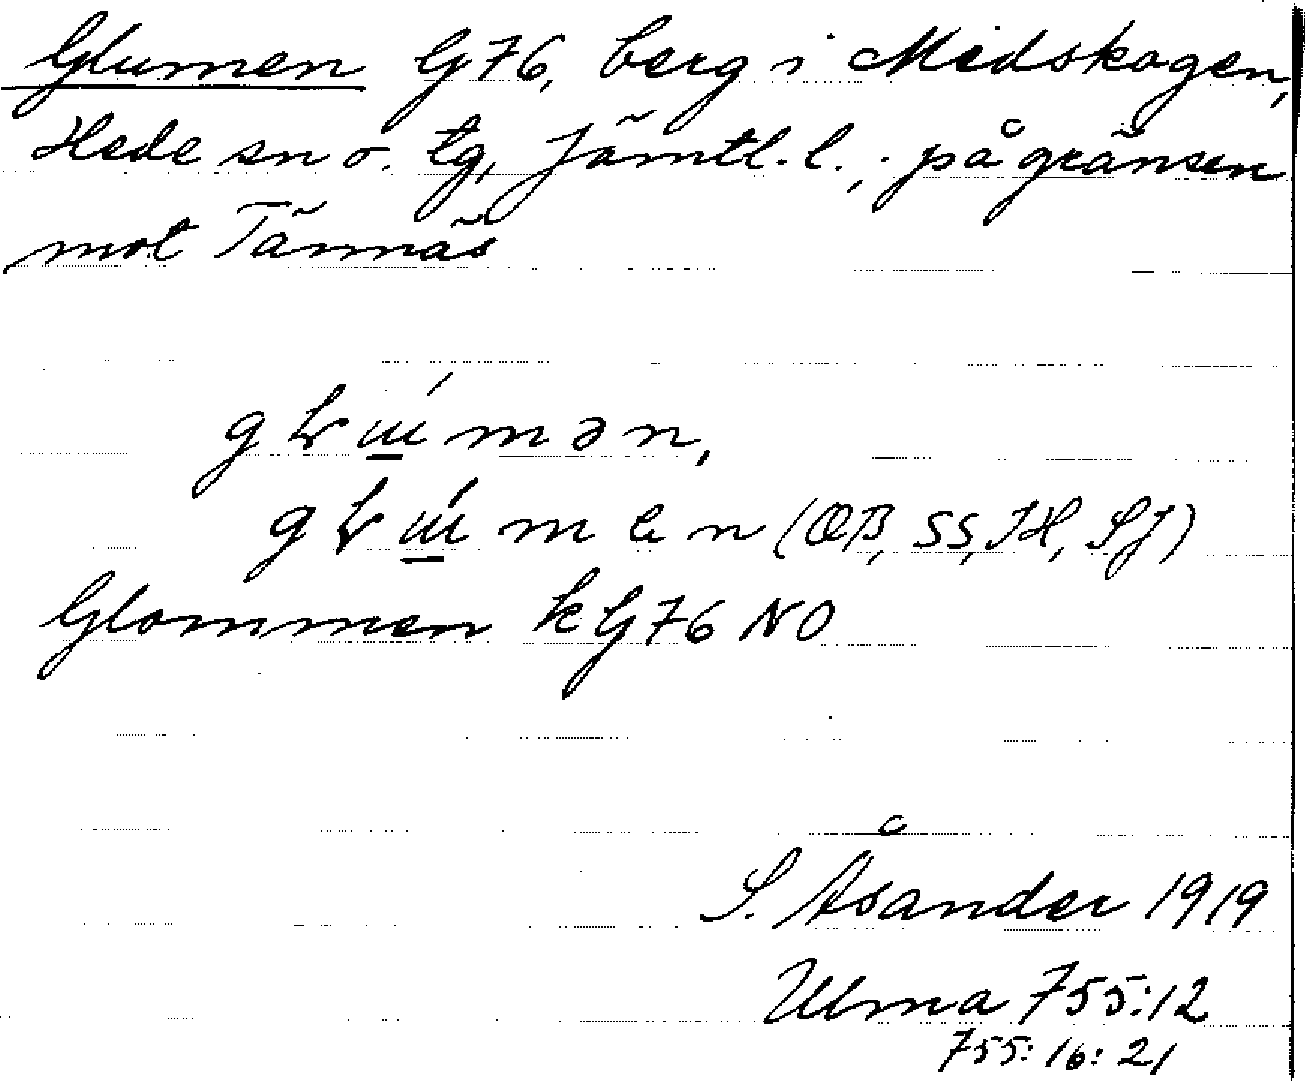 Glumen G76, berg i Medskogen,
Hede sn o. tg, Jämtl. l., på gränsen
mot Tännäs
mən,
men (OB, SS, JH, SJ)
Glommen k G76 NO
S. Åsander 1919
Ulma 755:12
755:16:21